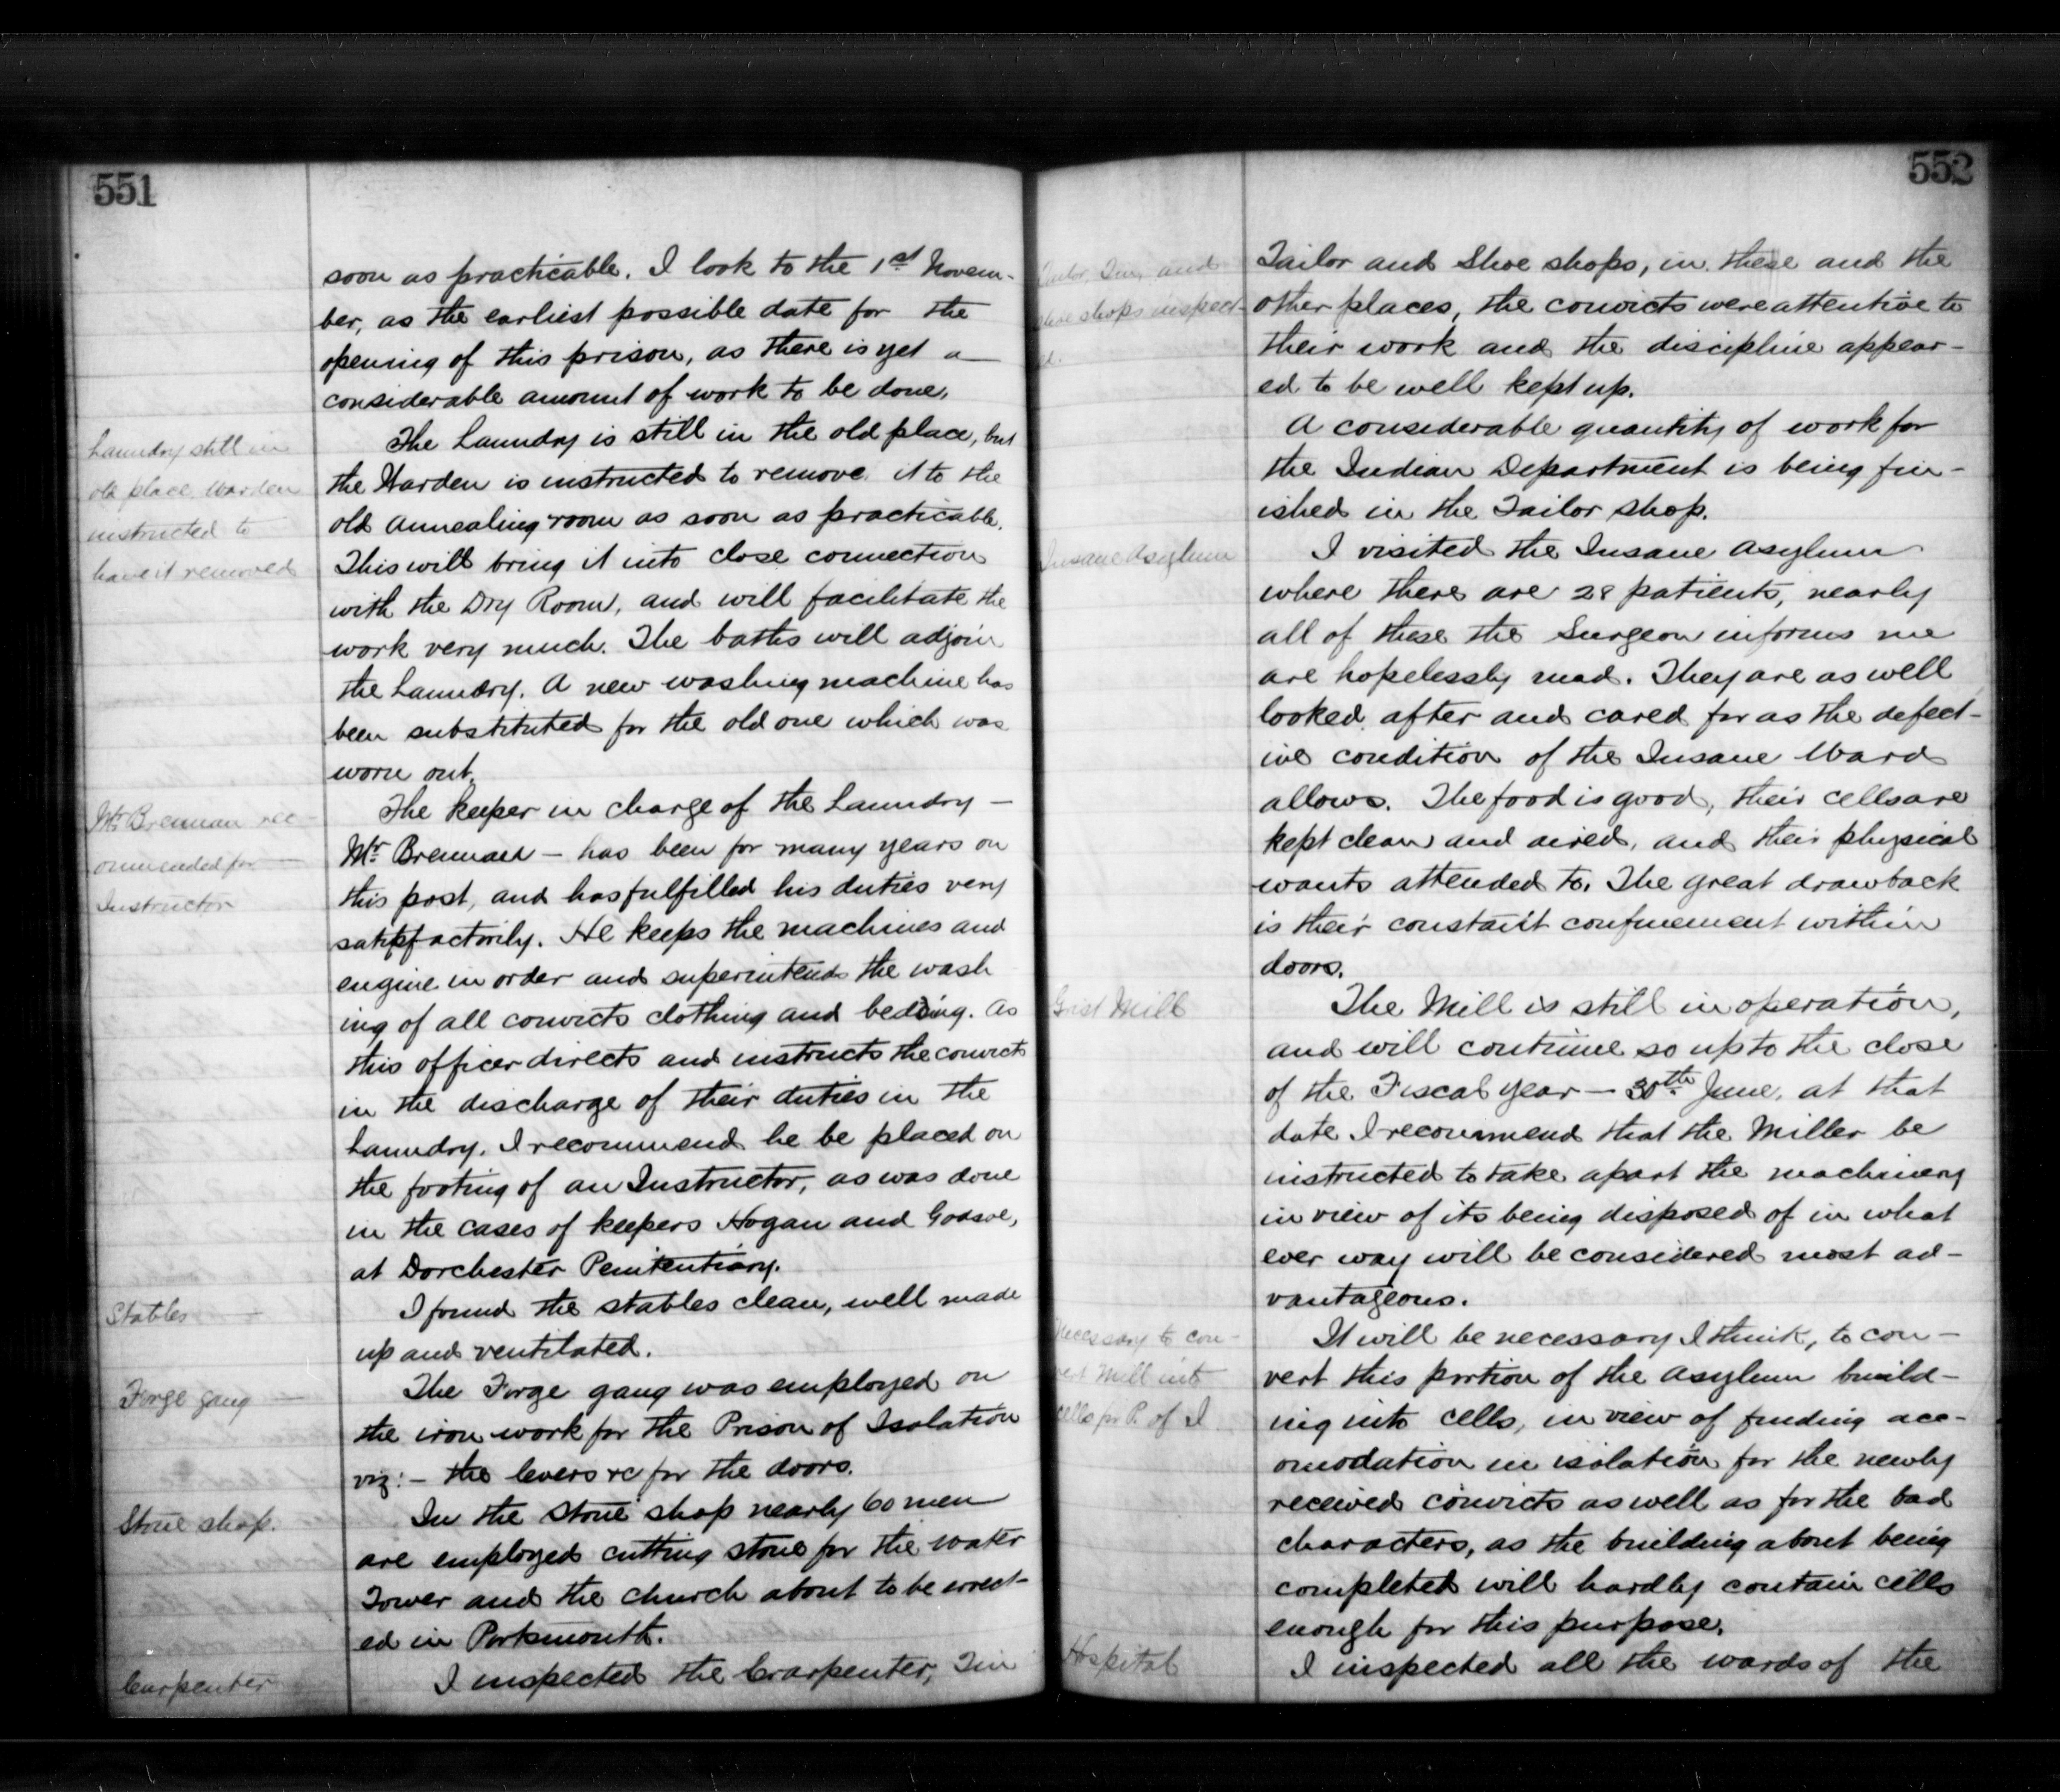 551
soon as practicable. I look to the 1st Novem-
ber, as the earliest possible date for the
opening of this prison, as there is yet a
considerable amount of work to be done.
Laundry still in
old place. Warden
instructed to
have it removed
The Laundry is still in the old place, but
the Warden is instructed to remove it to the
old Annealing room as soon as practicable.
This will bring it into close connection
with the Dry Room, and will facilitate the
work very much. The baths will adjoin
the Laundry. A new washing machine has
been substituted for the old one which was
worn out.
Mr Brennan rec-
ommended for
Instructor
The keeper in charge of the Laundry —
Mr Brennan — has been for many years on
this post, and has fulfilled his duties very
satisfactorily. He keeps the machines and
engine in order and superintends the wash
ing of all convicts clothing and bedding. As
this officer directs and instructs the convicts
in the discharge of their duties in the
Laundry. I recommend he be placed on
the footing of an Instructor, as was done
in the cases of keepers Hogan and Godsoe,
at Dorchester Penitentiary.
Stables —
I found the stables clean, well made
up and ventilated.
Forge gang —
The Forge gang was employed on
the iron work for the Prison of Isolation
viz:- the levers &c for the doors.
Stone shop.
In the Stone shop nearly 60 men
are employed cutting stone for the water
Tower and the church about to be erect-
ed in Portsmouth.
Carpenter
I inspected the Crarpenter, Tin
552
Tailor, Tin, and
shoe shops inspect-
ed.
Tailor and Shoe shops, in these and the
other places, the convicts were attentive to
their work and the discipline appear-
ed to be well kept up.
A considerable quantity of work for
the Indian Department is being fin-
ished in the Tailor shop.
Insane Asylum
I visited the Insane Asylum
where there are 28 patients, nearly
all of these the Surgeon informs me
are hopelessly mad. They are as well
looked after and cared for as the defect-
ive condition of the Insane Ward
allows. The food is good, their cells are
kept clean and aired, and their physical
wants attended to. The great drawback
is their constant confinement within
doors.
Grist Mill
The Mill is still in operation,
and will continue so up to the close
of the Fiscal year — 30th June, at that
date I recommend that the Miller be
instructed to take apart the machinery
in view of its being disposed of in what
ever way will be considered most ad-
vantageous.
Necessary to con-
vert Mill into
cells for P. of I
It will be necessary I think, to con-
vert this portion of the Asylum build-
ing into cells, in view of finding acc-
omodation in isolation for the newly
received convicts as well as for the bad
characters, as the building about being
completed will hardly contain cells
enough for this purpose.
Hospital
I inspected all the wards of the